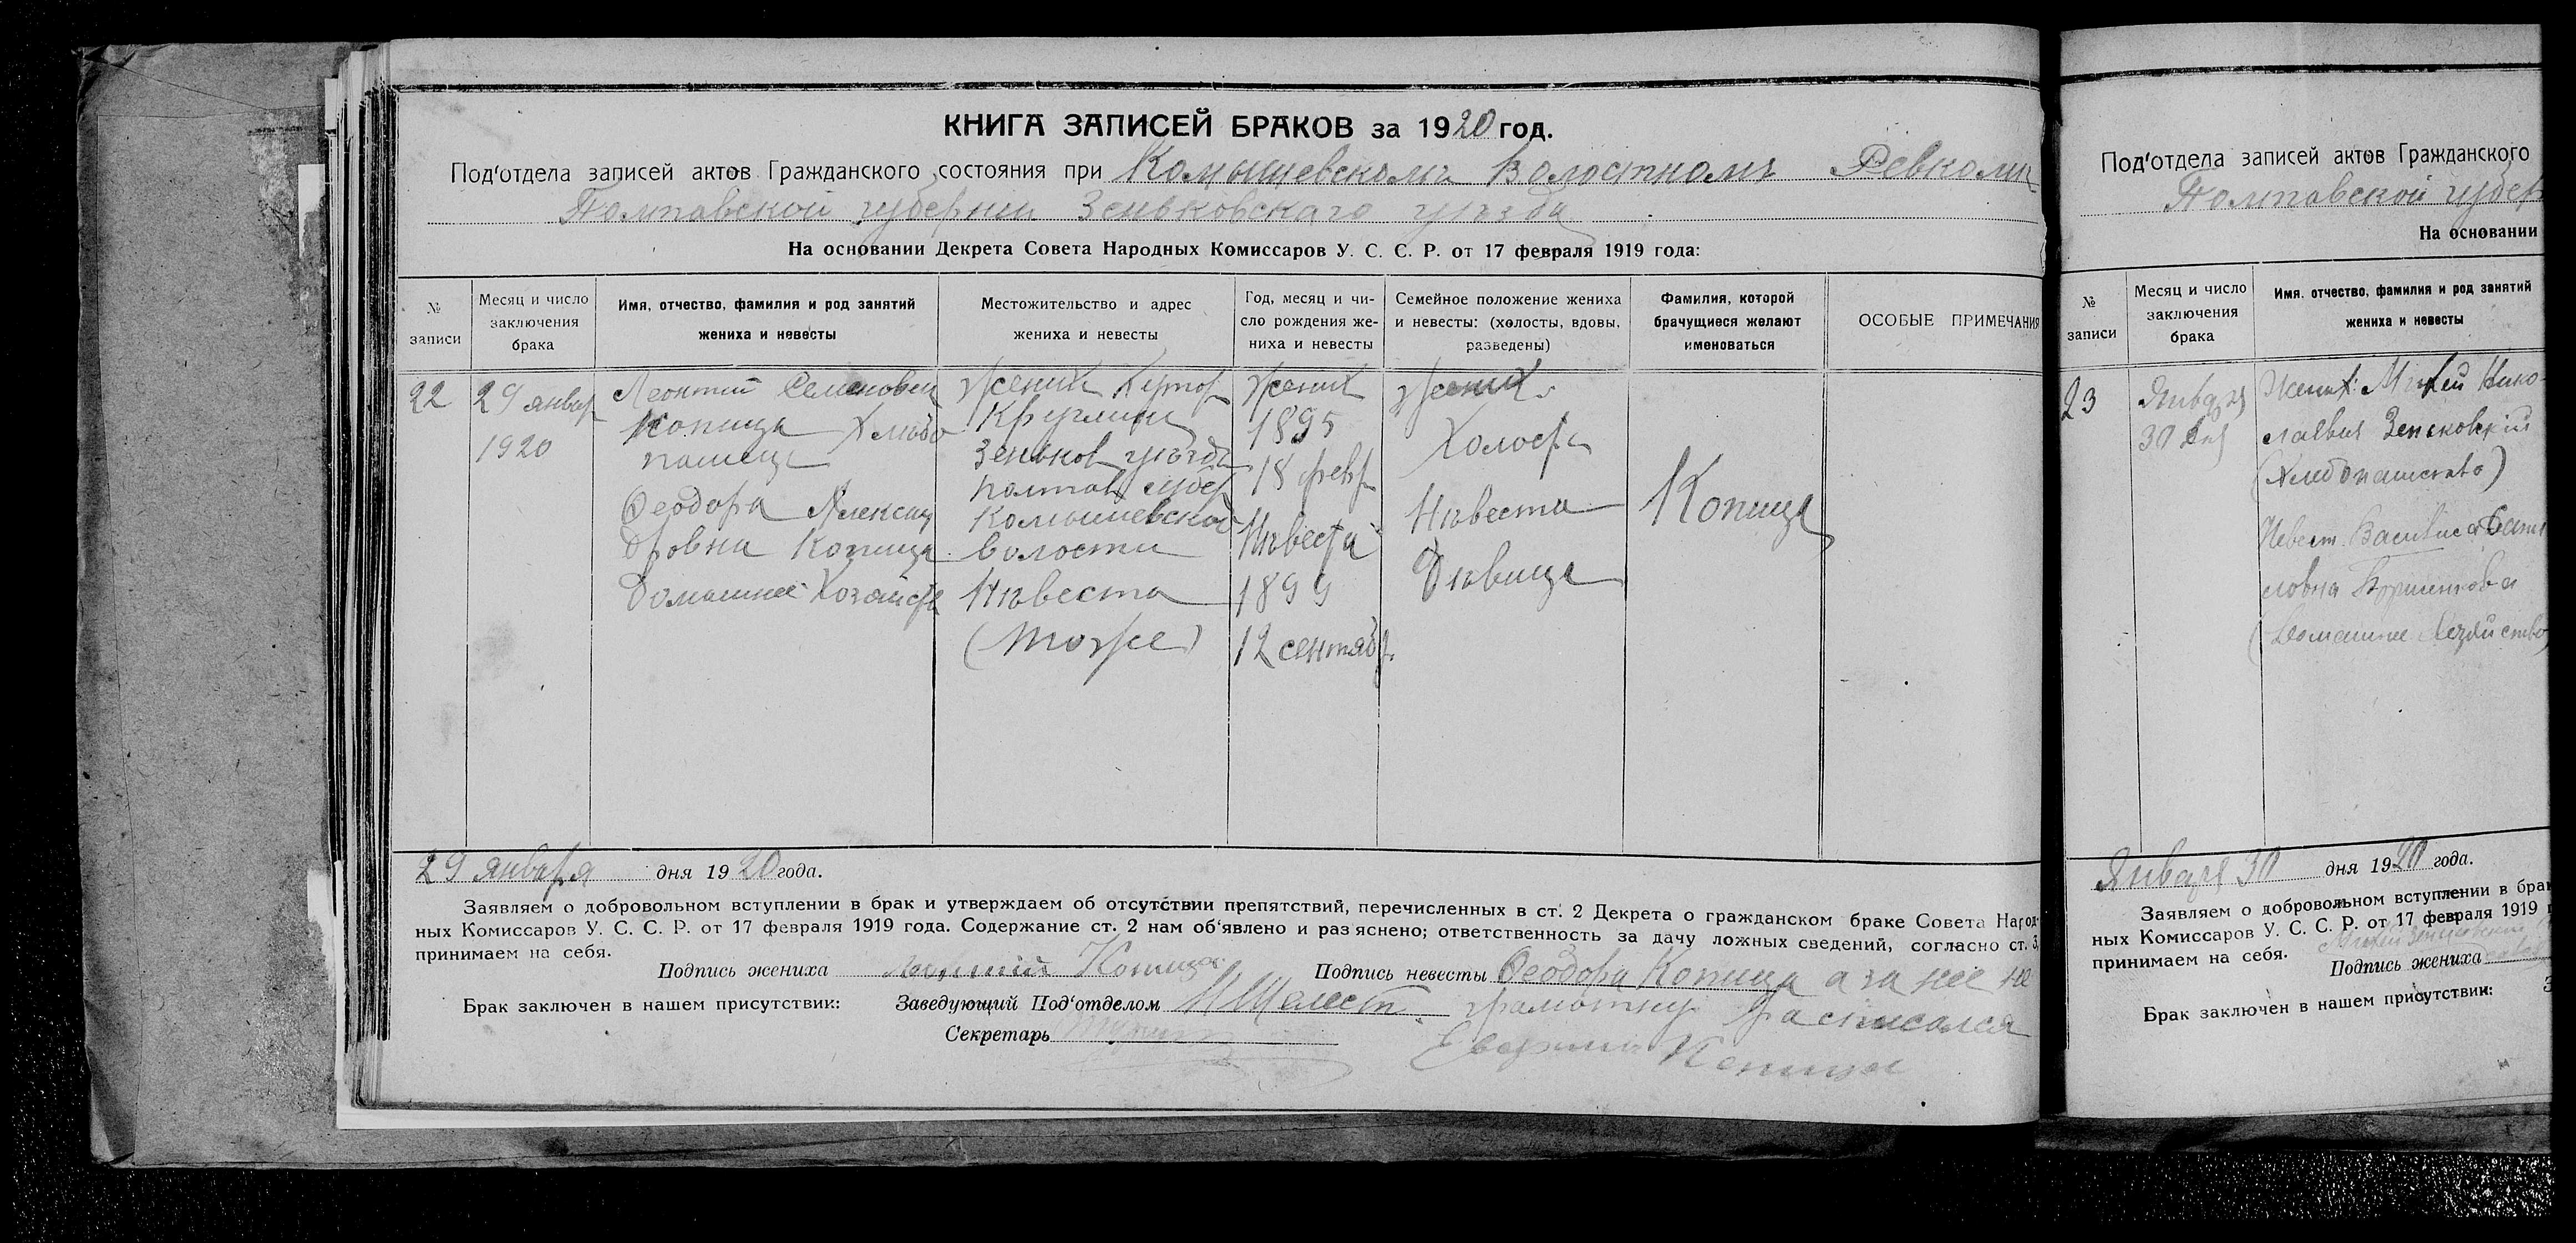 КНИГА ЗАПИСЕЙ БРАКОВ за 1920 год.
Под'отдела записей актов Гражданского состояния при Комышевскомъ Волостномъ Ревком
Полтавской губернии Зеньковскаго уѣзда
На основании Декрета Совета Народных Комиссаров У. С. С. Р. от 17 февраля 1919 года:
№ записи
Месяц и число заключения брака
Имя, отчество, фамилия и род занятий жениха и невесты
Местожительство и адрес жениха и невесты
Год, месяц и число рождения жениха и невесты
Семейное положение жениха и невесты: (холосты, вдовы, разведены)
Фамилия, которой брачущиеся желают именоваться
ОСОБЫЕ ПРИМЕЧАНИЯ
22
29 январ
1920
Леонтий Семенович
Копица Хлѣбо
пашец
Феодора Алексан
дровна Копица
Домашнее Хозяйст
Жених Хутор
Зеньков уѣзда
Полтав губер
Комышевской
волости
Невеста
(тоже)
Жених
1895
18 февр
Невеста
1899
12 сентяб
Жених
Холост
Невеста
Девица
Копица
29 января дня 1920 года.
Заявляем о добровольном вступлении в брак и утверждаем об отсутствии препятствий, перечисленных в ст. 2 Декрета о гражданском браке Совета Народ-
ных Комиссаров У. С. С. Р. от 17 февраля 1919 года. Содержание ст. 2 нам об'явлено и раз яснено; ответственность за дачу ложных сведений, согласно ст. 3,
принимаем на себя.
Подпись жениха Леонтий Копица Подпись невесты Феодора Копица а за нее не
Брак заключен в нашем присутствии: Заведующий Под'отделом Шелест грамотную расписался
Секретарь
Копица
Под'отдела записей актов Гражданского
Полтавской губер
На основании
№ записи
Месяц и число заключения брака
Имя, отчество, фамилия и род занятий жениха и невесты
23
Января
30 дня
Жених: Михей Нико-
лаевич Зеньковский
(Хлебопашество)
Невест. Василиса
ловна
(Домашнее Хозяйство)
Января 30 дня 1920 года.
Заявляем о добровольном вступлении в брак
ных Комиссаров У. С. С. Р. от 17 февраля 1919
принимаем на себя.
Подпись жениха
Брак заключен в нашем присутствии: